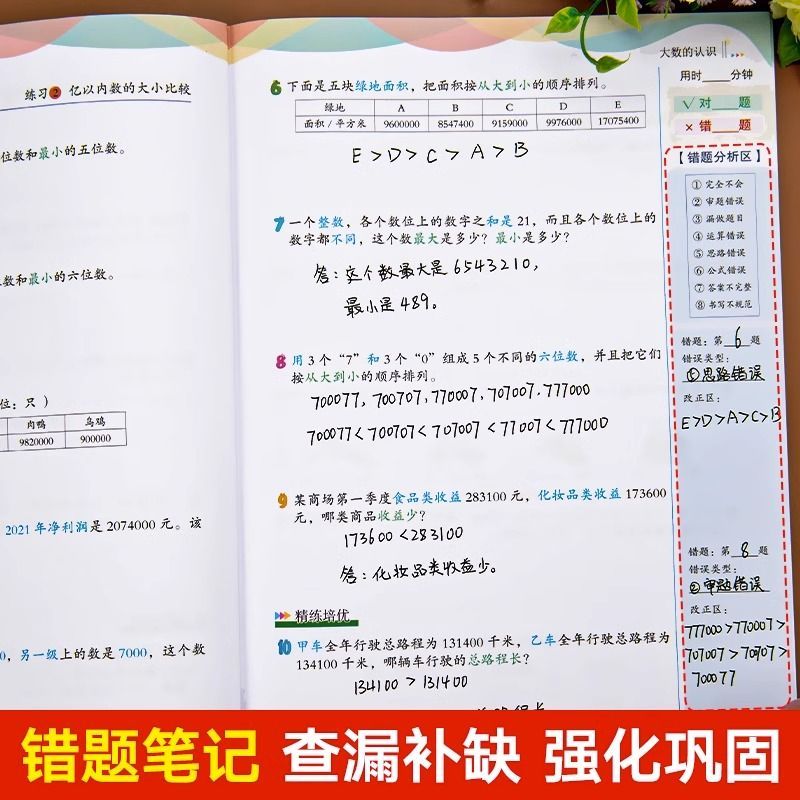 练习2 亿以内数的大小比较
位数和最小的五位数。
数和最小的六位数。
位：只 ）
肉鸭 乌鸡
9820000 900000
2021 年净利润是 2074000 元。该
0，另一级上的数是 7000，这个数
大数的认识
6 下面是五块绿地面积，把面积按从大到小的顺序排列。
绿地 A B C D E
面积 / 平方米 9600000 8547400 9159000 9976000 17075400
E>D>C>A>B
7 一个整数，各个数位上的数字之和是 21，而且各个数位上的
数字都不同，这个数最大是多少？最小是多少？
答：这个数最大是6543210，
最小是489。
8 用 3 个“7”和 3 个“0”组成 5 个不同的六位数，并且把它们
按从大到小的顺序排列。
700077，700707，770007，707007，777000
700077<700707<707007<77007<777000
9 某商场第一季度食品类收益 283100 元，化妆品类收益 173600
元，哪类商品收益少？
173600<283100
答：化妆品类收益少。
精练培优
10 甲车全年行驶总路程为 131400 千米，乙车全年行驶总路程为
134100 千米，哪辆车行驶的总路程长？
134100 > 131400
用时____分钟
√ 对____题
× 错____题
【错题分析区】
① 完全不会
② 审题错误
③ 漏做题目
④ 运算错误
⑤ 思路错误
⑥ 公式错误
⑦ 答案不完整
⑧ 书写不规范
错题：第 6 题
错误类型：
⑤思路错误
改正区：
E>D>A>C>B
错题：第 8 题
错误类型：
②审题错误
改正区：
777000>770007>
707007>70707>
700077
错题笔记 查漏补缺 强化巩固